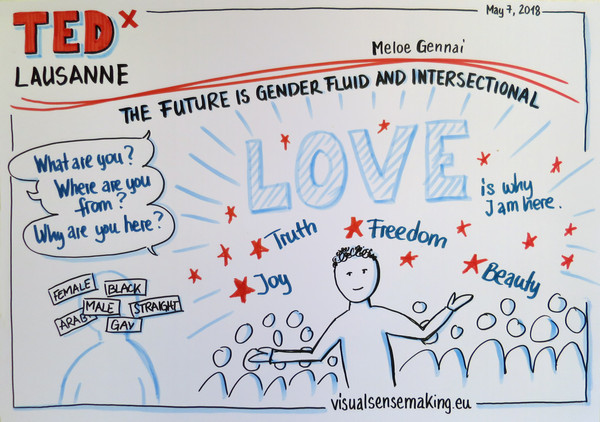 May 7, 2018
TEDx
LAUSANNE
Meloe Gennai
THE FUTURE IS GENDER FLUID AND INTERSECTIONAL
What are you?
Where are you
from?
Why are you here?
LOVE
is why
I am here.
Truth
Freedom
Joy
Beauty
FEMALE
BLACK
MALE
STRAIGHT
ARAB
GAY
visualsensemaking.eu